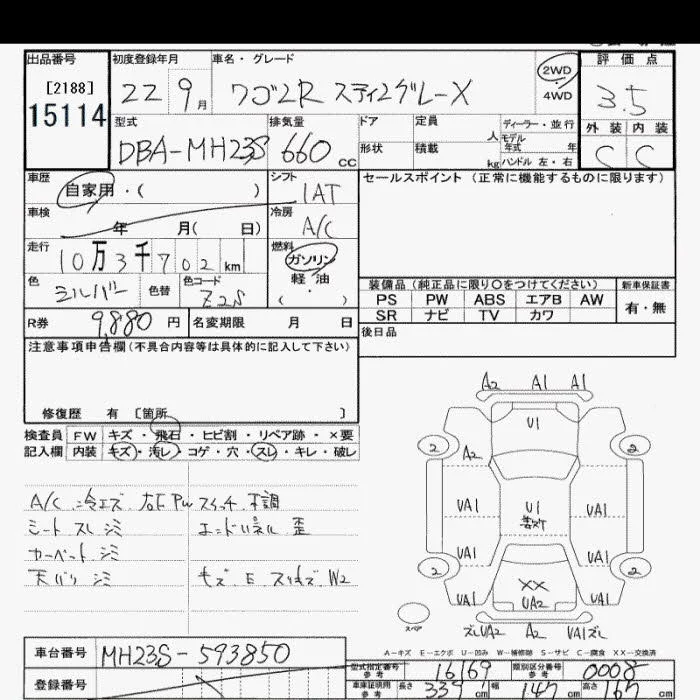 出品番号 初度登録年月 車名・グレード 2WD 4WD 評価点
[2188]
15114
22 9月 ワゴンR スティングレーX 3.5
型式 排気量 ドア 定員 人 ディーラー・並行 外装 内装
モデル年式 年
DBA-MH23S 660cc 形状 積載 kg ハンドル 左・右 C C
車歴 自家用・( ) シフト IAT セールスポイント(正常に機能するものに限ります)
車検 年 月( 日) 冷房 A/C
走行 10万3千702km 燃料 ガソリン・軽油 ( )
色 シルバー 色替 色コード Z2S
装備品(純正品に限り○をつけてください) 新車保証書
PS PW ABS エアB AW 有・無
SR ナビ TV カワ
R券 9,880円 名変期限 月 日 後日品
注意事項申告欄(不具合内容等は具体的に記入して下さい)
修復歴 有 [箇所 ]
検査員 FW キズ・飛石・ヒビ割・リペア跡・×要
記入欄 内装 キズ・汚レ・コゲ・穴・スレ・キレ・破レ
A/C 冷エズ 右F PW スイッチ 不調
シート スレ シミ エンドパネル 歪
カーペット シミ
天バリ シミ キズ E スリキズ W2
A2 A1 A1
U1
2 2
A2
UA1 U1 UA1
UA1 UA1
2 XX 2
UA1 UA2 UA1
ズレUA2 A2 VA1ズレ
スペア
A-キズ E-エクボ U-凹み W-補修跡 S-サビ C-腐食 XX-交換済
車台番号 MH23S-593850
型式指定番号 参考 16169 類別区分番号 参考 0008
登録番号
車庫証明用 参考 長さ 339cm 幅 147cm 高さ 167cm